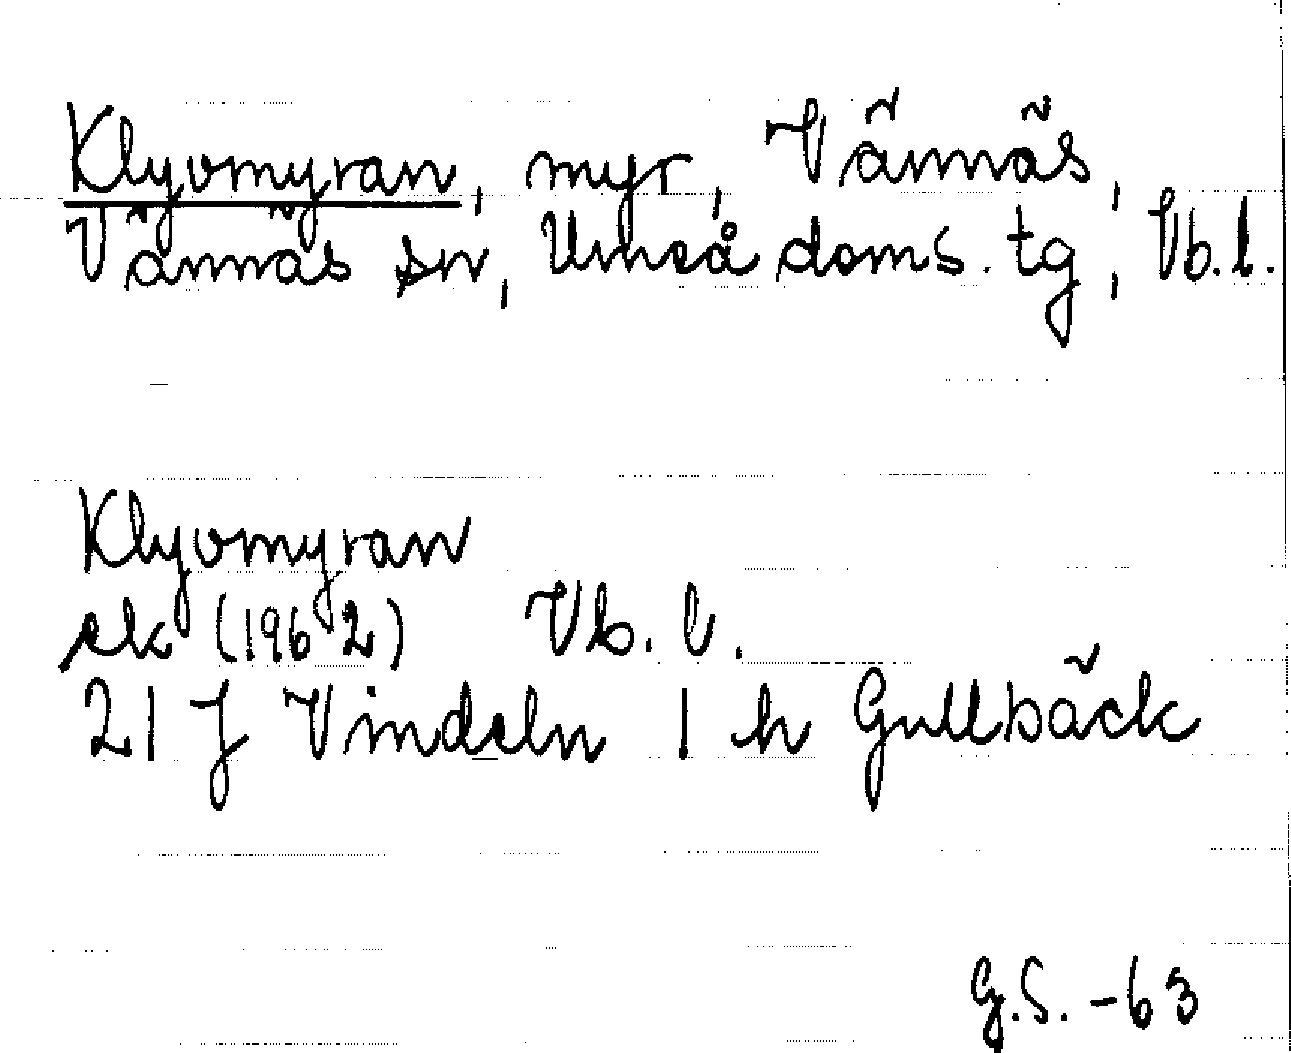 Klyvmyran, myr, Vännäs,
Vännäs sn, Umeå doms. tg, Vb. l.
Klyvmyran
ek (1962) Vb. l.
21 J Vindeln 1 h Gullbäck
G.S. -63